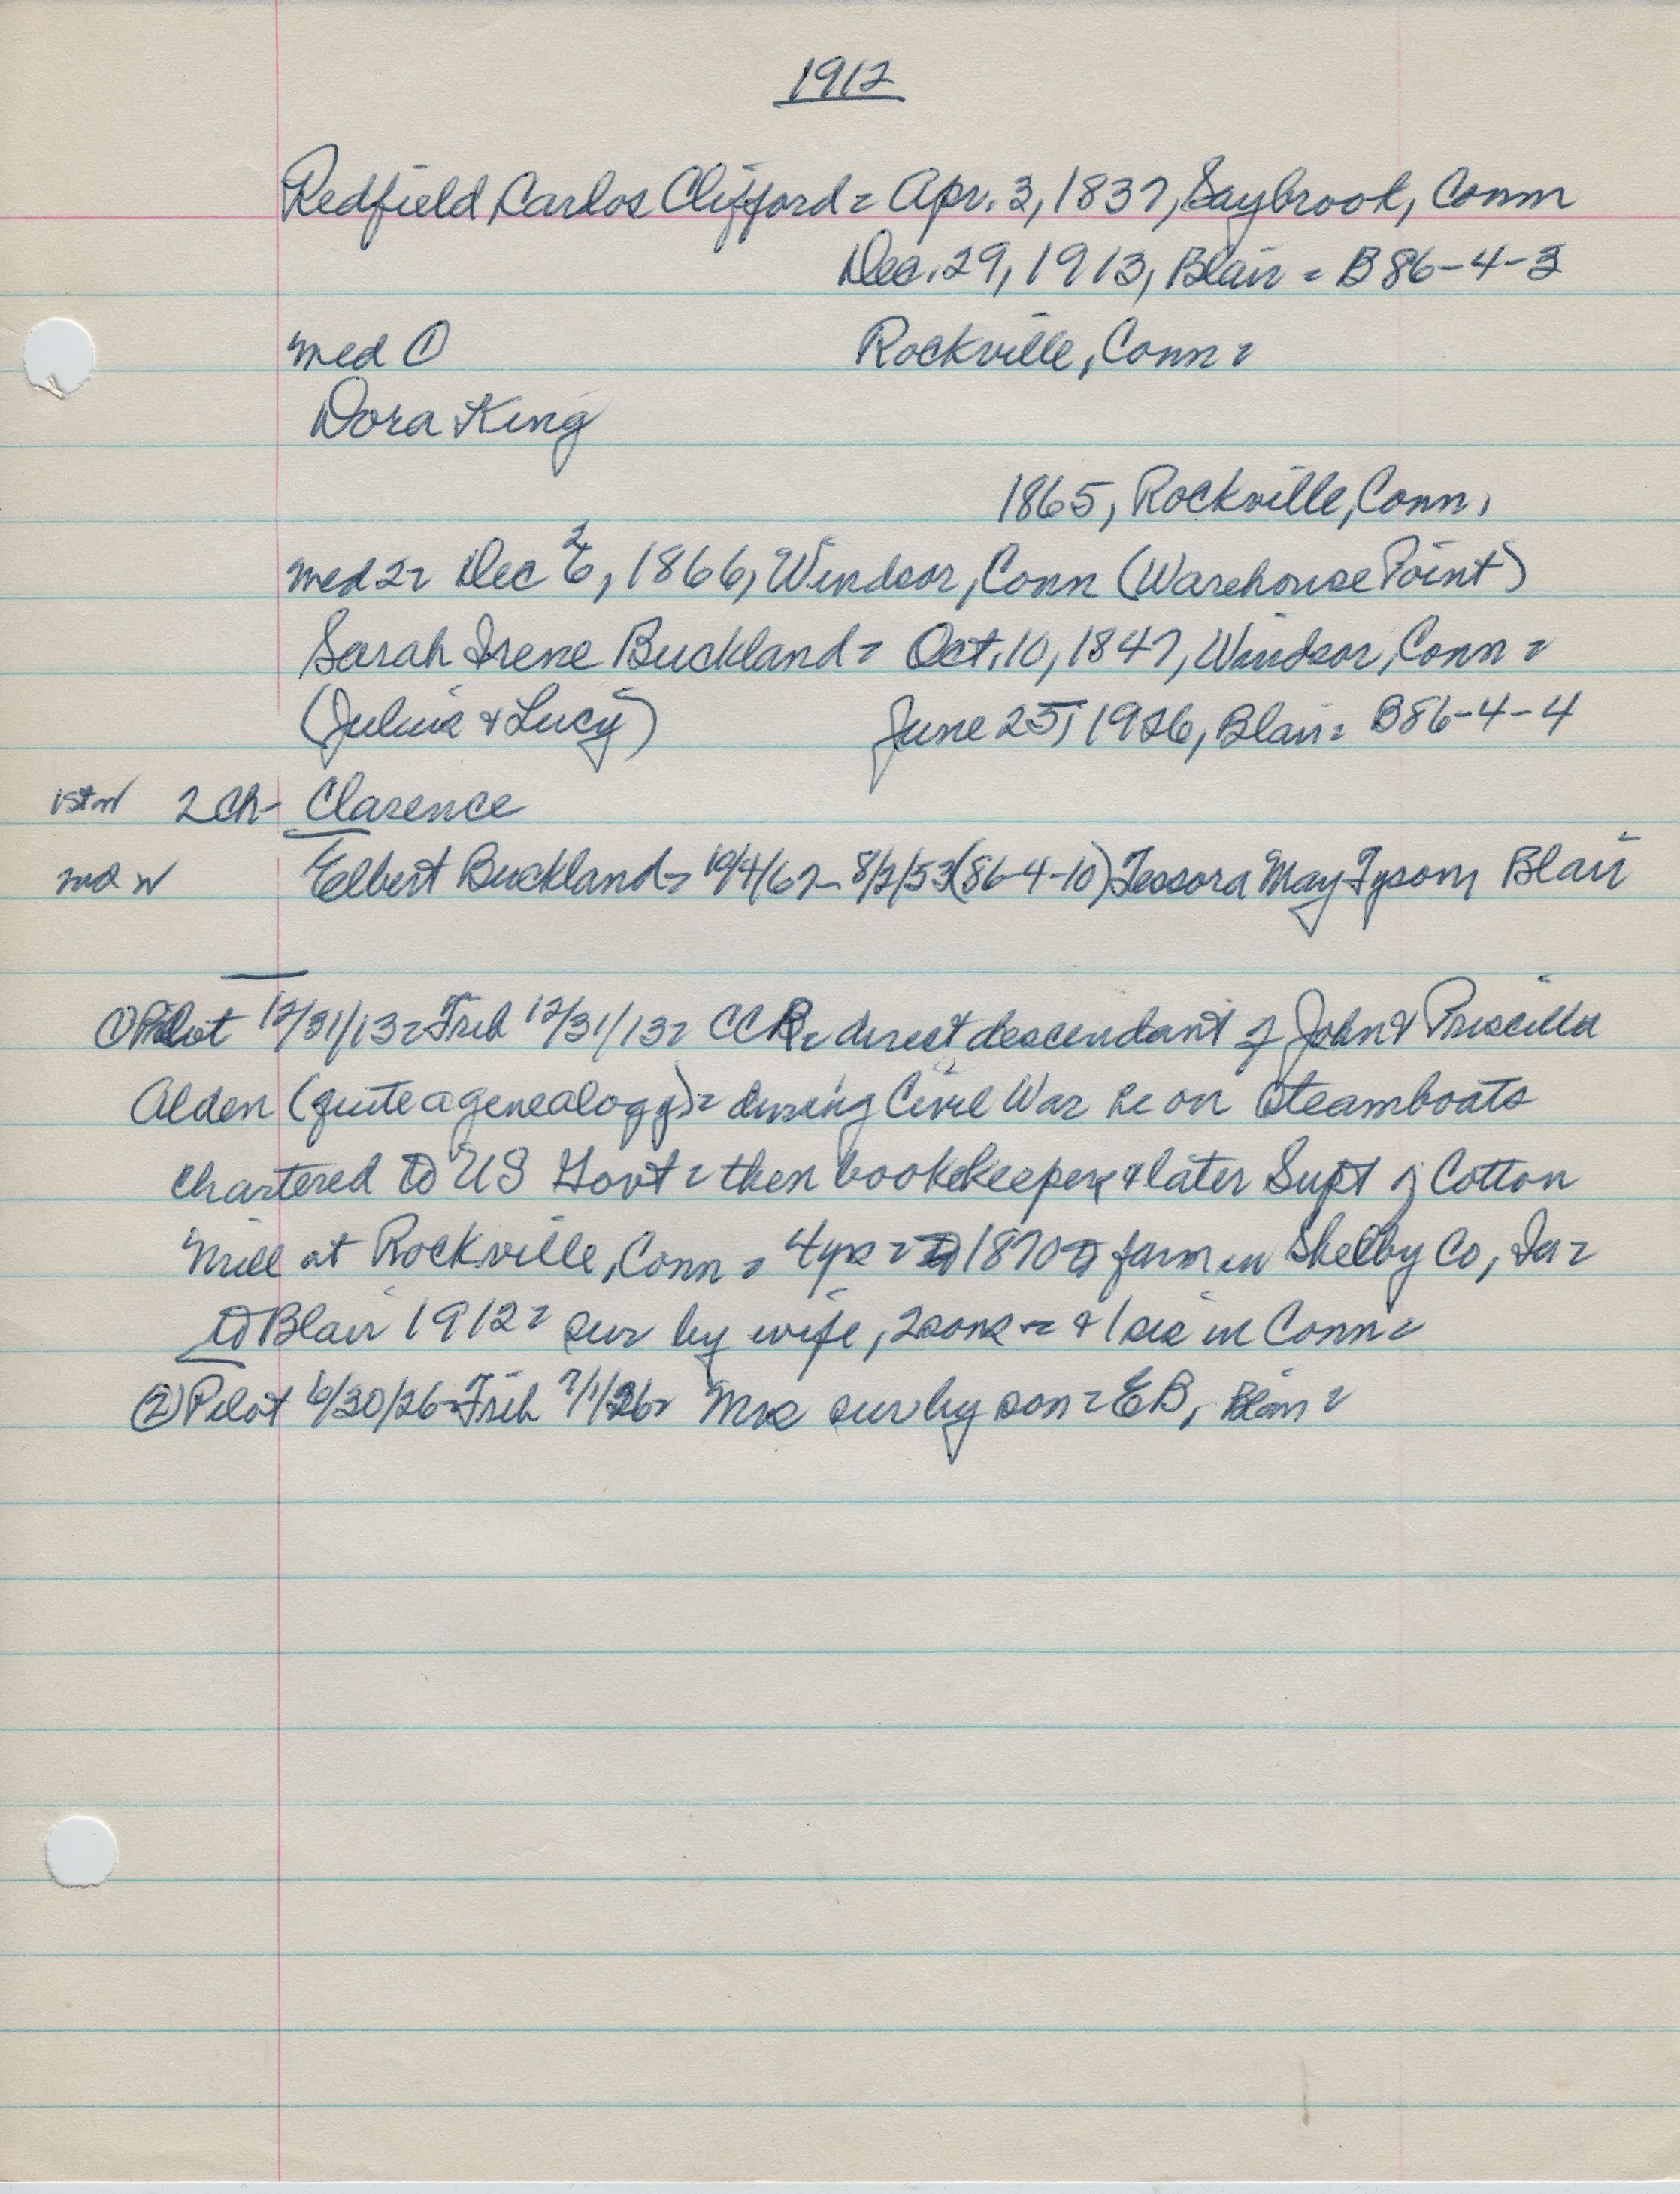 1912
Redfield, Carlos Clifford = Apr. 3, 1837, Saybrook, Conn
Dec. 29, 1913, Blair = B86-4-3
med ① Rockville, Conn =
Dora King
1865, Rockville, Conn,
med 2 = Dec 2, 1866, Windsor, Conn (Warehouse Point)
Sarah Irene Buckland = Oct. 10, 1847, Windsor, Conn =
(Julius & Lucy) June 25, 1926, Blair = B86-4-4
1st w 2 ch - Clarence
2nd w Elbert Buckland = 10/4/67 - 8/2/53 (86-4-10) Tessora May Tyson, Blair
① Pilot 12/31/13 = Trib 12/31/13 = CCR = direct descendant of John & Priscilla
Alden (quite a genealogy) = during Civil War he on steamboats
chartered to US Govt = then bookkeeper & later Supt of Cotton
Mill at Rockville, Conn = 4 yrs = 1870 farm in Shelby Co, Ia =
to Blair 1912 = sur by wife, 2 sons = & 1 sis in Conn =
② Pilot 6/30/26 = Trib 7/1/26 = Mrs sur by son = EB, Blair =